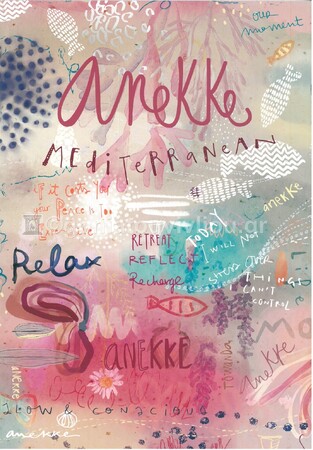 our
moment
anekke
MEDITERRANEAN
If it costs you
your Peace is too
anekke
RETREAT
REFLECT
Recharge
TODAY
I WILL NOT
stress over
THINGS
I CAN'T
CONTROL
Relax
ANEKKE
anekke
ANEKKE
SLOW & CONSCIOUS
anekke